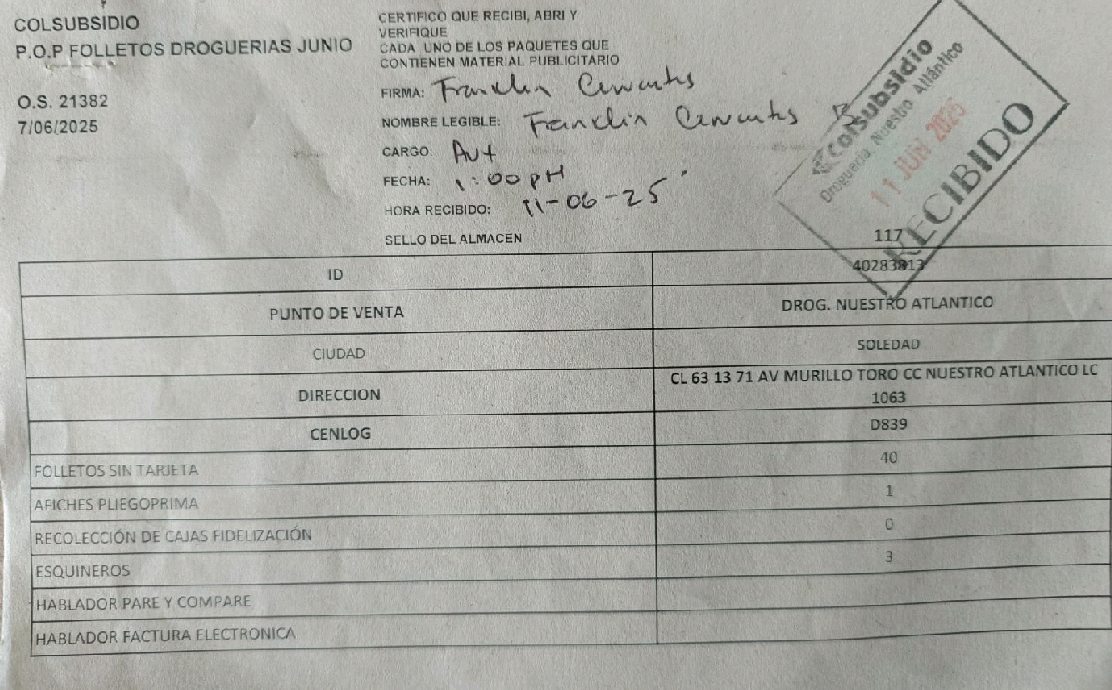 COLSUBSIDIO
P.O.P FOLLETOS DROGUERIAS JUNIO
O.S. 21382
7/06/2025
CERTIFICO QUE RECIBI, ABRI Y
VERIFIQUE
CADA UNO DE LOS PAQUETES QUE
CONTIENEN MATERIAL PUBLICITARIO
FIRMA: Franclin Cervantes
NOMBRE LEGIBLE: Franclin Cervantes B
CARGO: Aux
FECHA: 1:00 PM
HORA RECIBIDO: 11-06-25
SELLO DEL ALMACEN
Colsubsidio
Droguería Nuestro Atlántico
11 JUN 2025
RECIBIDO
117
ID 40283813
PUNTO DE VENTA DROG. NUESTRO ATLANTICO
CIUDAD SOLEDAD
DIRECCION CL 63 13 71 AV MURILLO TORO CC NUESTRO ATLANTICO LC
1063
CENLOG D839
FOLLETOS SIN TARJETA 40
AFICHES PLIEGOPRIMA 1
RECOLECCIÓN DE CAJAS FIDELIZACIÓN 0
ESQUINEROS 3
HABLADOR PARE Y COMPARE
HABLADOR FACTURA ELECTRONICA